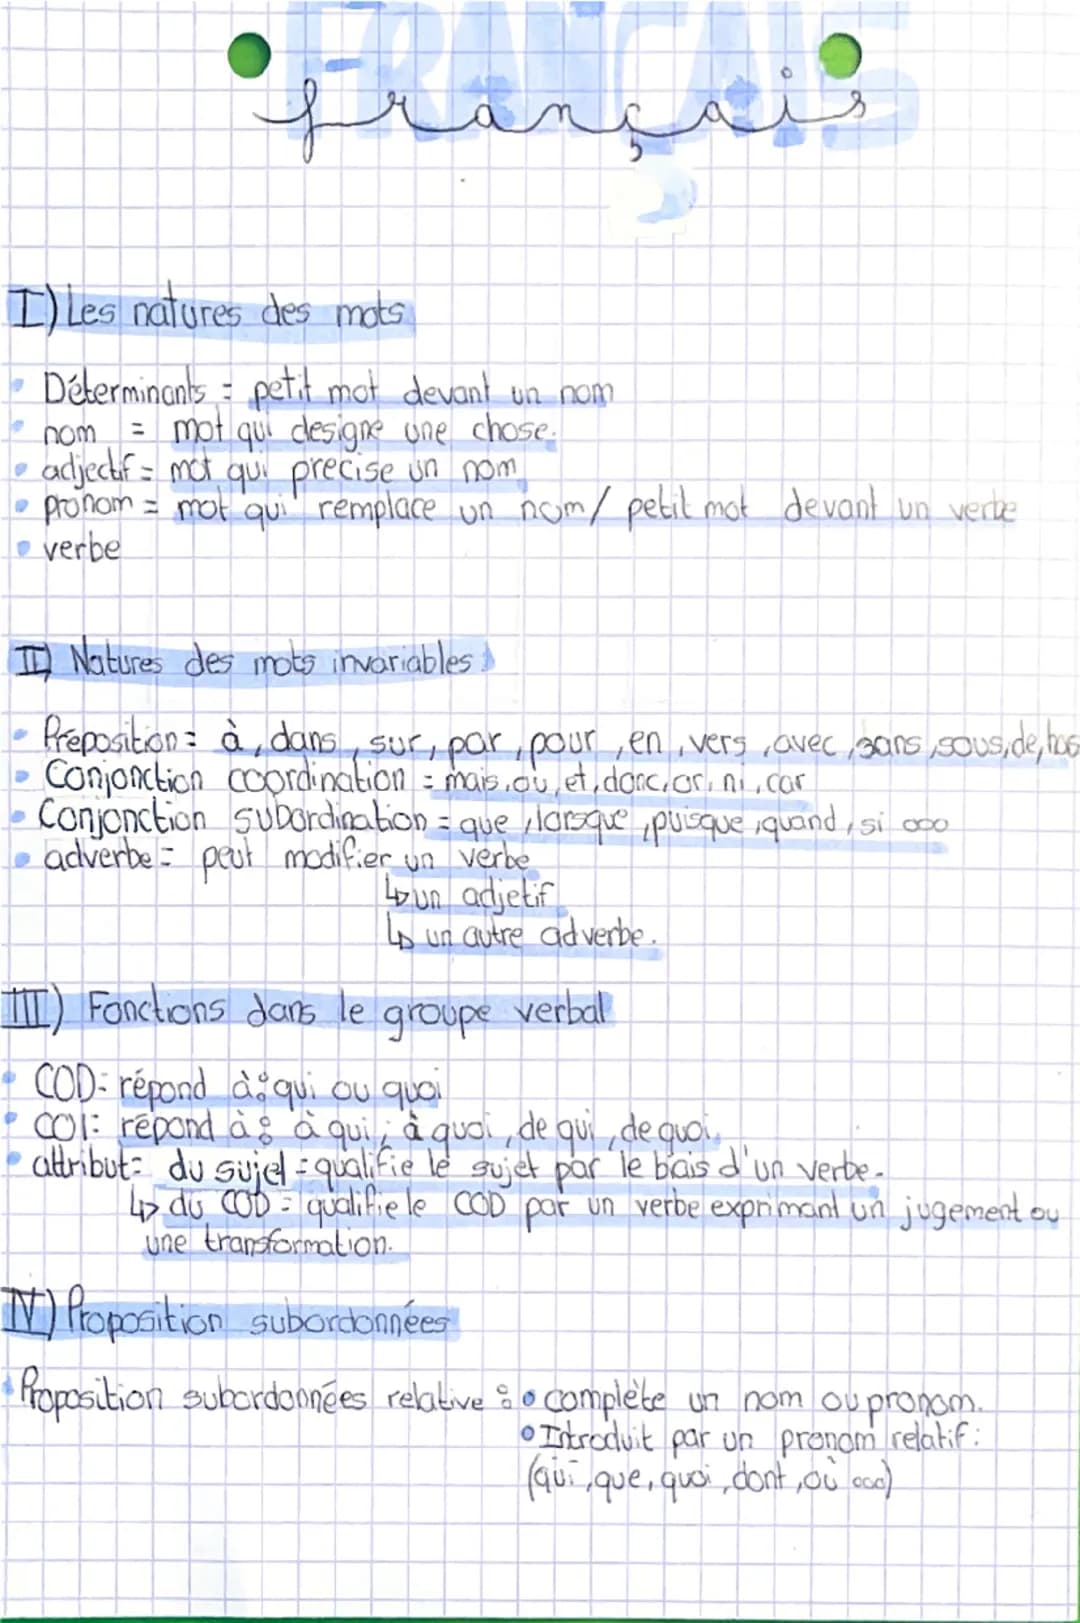 FRANÇAIS
français
I) Les natures des mots
Déterminants = petit mot devant un nom
nom = mot qui designe une chose.
adjectif = mot qui precise un nom
pronom = mot qui remplace un nom / petit mot devant un verbe
verbe
II) Natures des mots invariables
Préposition = à, dans, sur, par, pour, en, vers, avec, sans, sous, de, hors
Conjonction coordination = mais, ou, et, donc, or, ni, car
Conjonction subordination = que, lorsque, puisque, quand, si ooo
adverbe = peut modifier un verbe
↳ un adjetif
↳ un autre adverbe.
III) Fonctions dans le groupe verbal
COD = répond à : qui ou quoi
COI : répond à : à qui, à quoi, de qui, de quoi.
attribut = du sujet = qualifie le sujet par le biais d'un verbe.
↳ du COD = qualifie le COD par un verbe exprimant un jugement ou
une transformation.
IV) Proposition subordonnées
Proposition subordonnées relative : • complète un nom ou pronom.
• Introduit par un pronom relatif :
(qui, que, quoi, dont, où ooo)